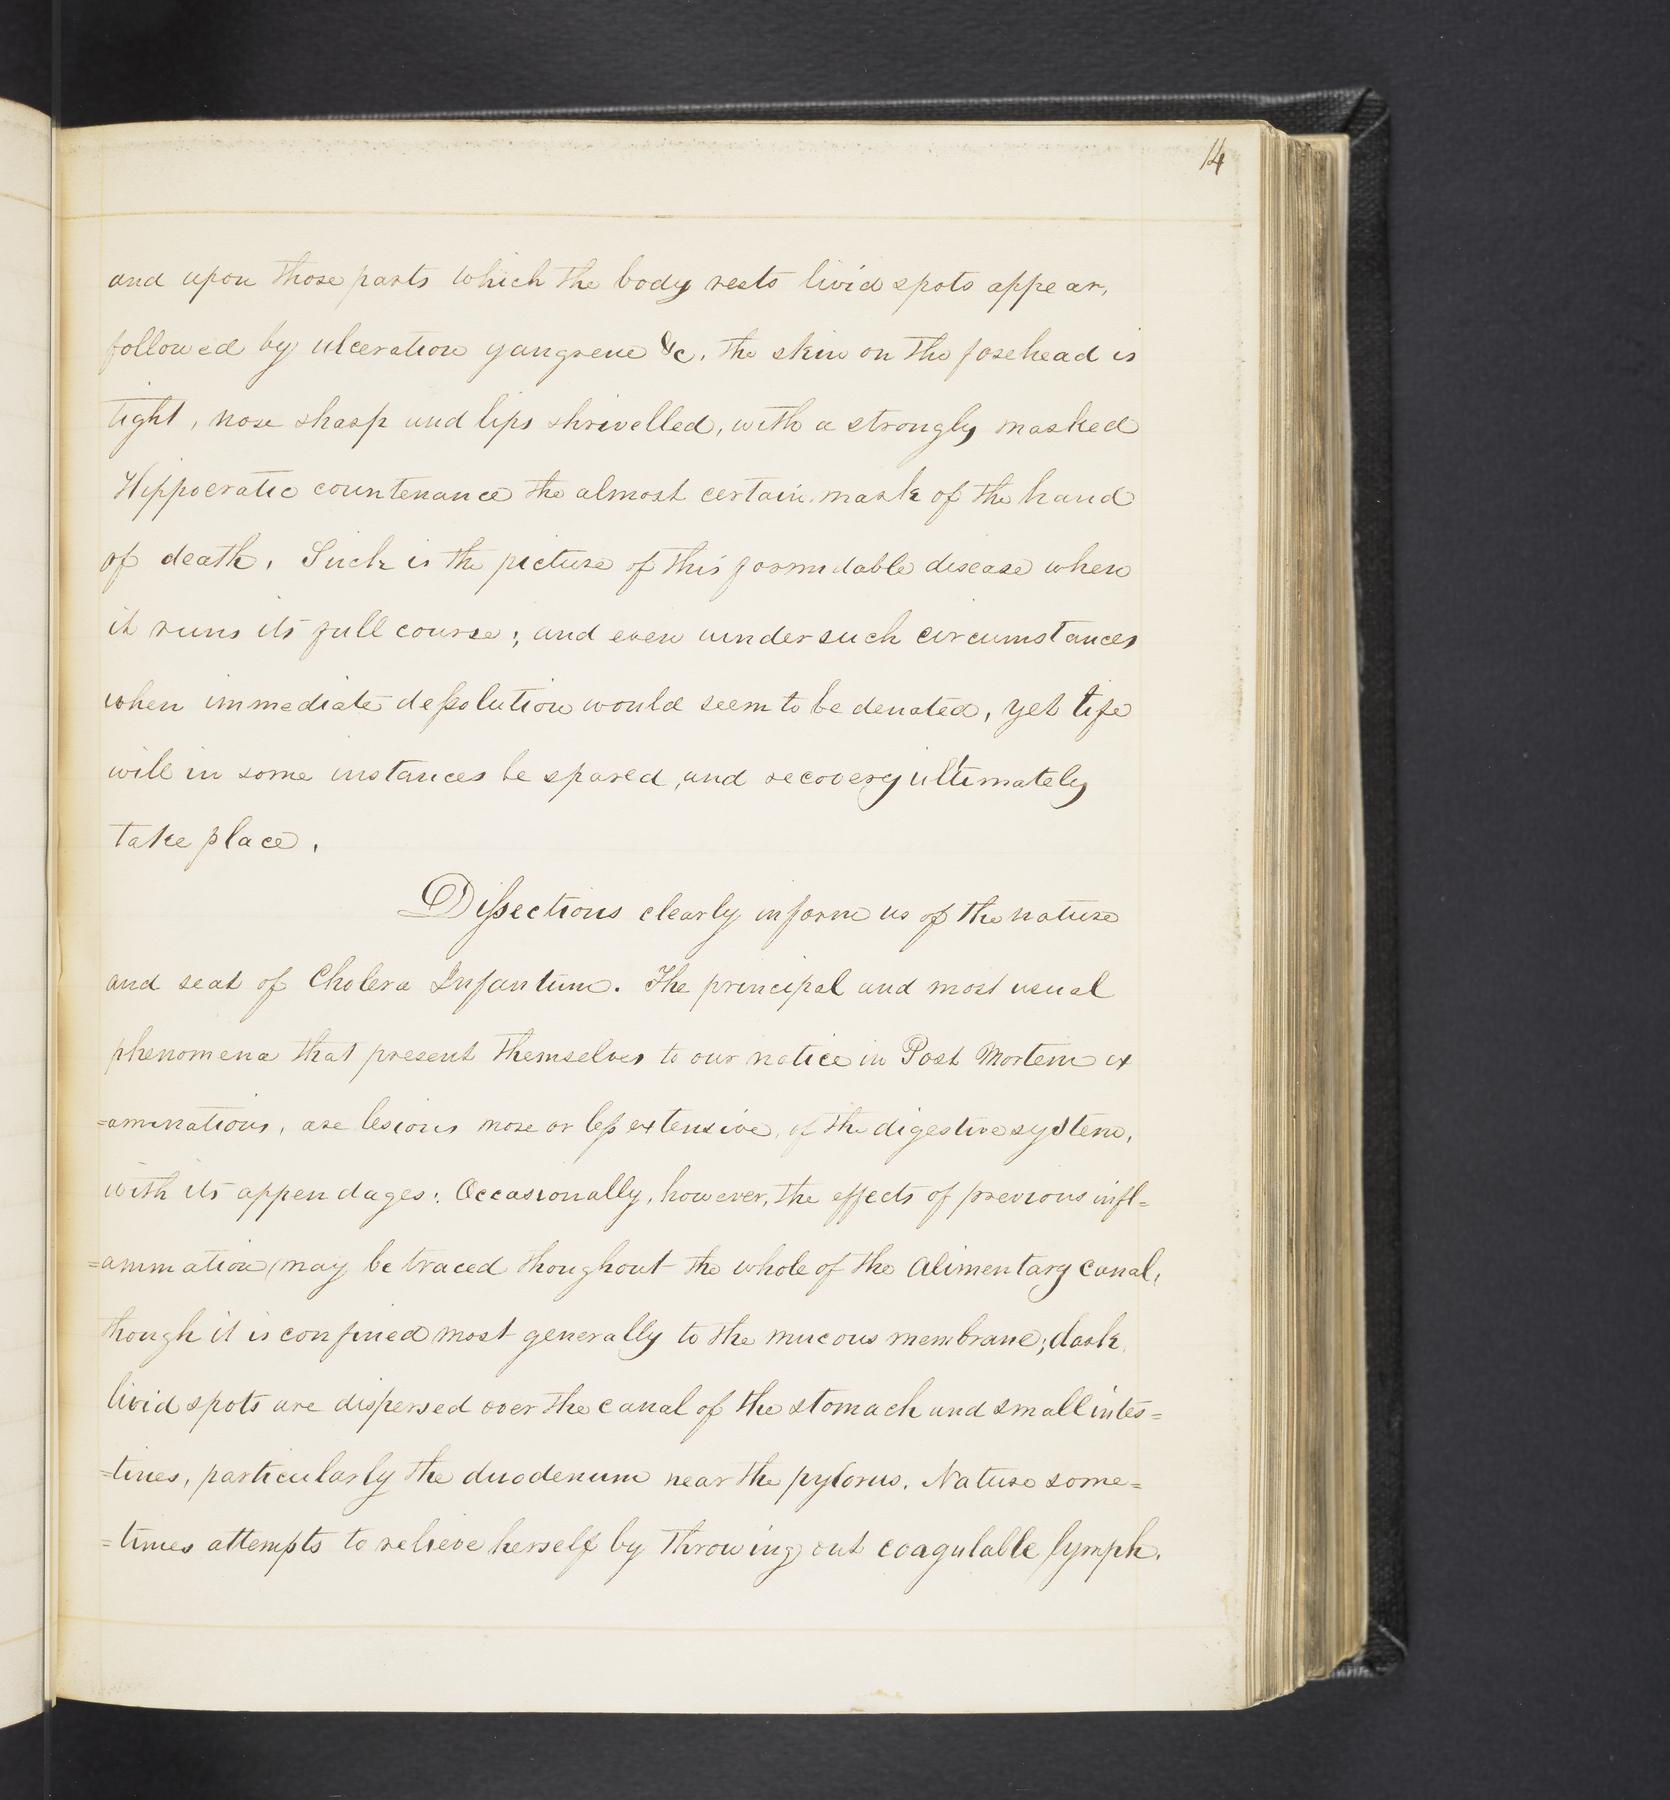 14
and upon those parts which the body rests livid spots appear,
followed by ulceration gangrene &c. the skin on the forehead is
tight, nose sharp and lips shrivelled, with a strongly marked
Hippocratic countenance the almost certain mark of the hand
of death. Such is the picture of this formidable disease when
it runs its full course; and even under such circumstances
when immediate dessolution would seem to be denoted, yet life
will in some instances be spared, and recovery ultimately
take place.
Dissections clearly inform us of the nature
and seat of Cholera Infantum. The principal and most usual
phenomena that present themselves to our notice in Post Mortem ex
=aminations, are lesions more or less extensive, of the digestive system,
with its appendages: Occasionally, however, the effects of previous infl=
=ammation may be traced thoughout the whole of the alimentary canal,
though it is confined most generally to the mucous membrane; dark
livid spots are dispersed over the canal of the stomach and small intes=
=tines, particularly the duodenum near the pylorus. Nature some=
=times attempts to relieve herself by throwing out coagulable lymph.